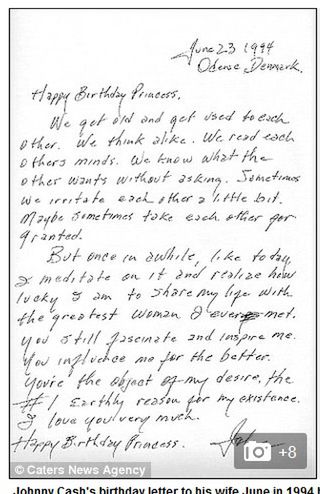 June 23 1994
Odense Denmark.
Happy Birthday Princess,
We get old and get used to each
other. We think alike. We read each
others minds. We know what the
other wants without asking. Sometimes
we irritate each other a little bit.
Maybe sometimes take each other for
granted.
But once in awhile, like today,
I meditate on it and realize how
lucky I am to share my life with
the greatest woman I ever met.
You still fascinate and inspire me.
You influence me for the better.
You're the object of my desire, the
#1 Earthly reason for my existence.
I love you very much.
Happy Birthday Princess.
John
+8
© Caters News Agency
Johnny Cash's birthday letter to his wife June in 1994